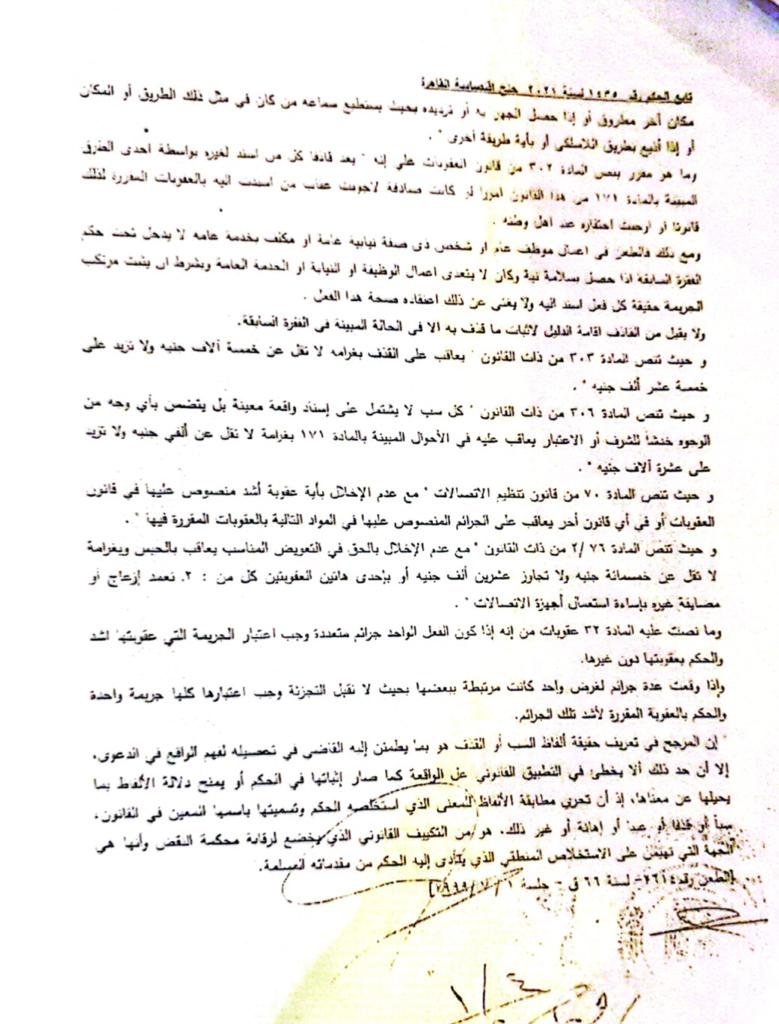 تابع الحكم رقم ١٤٣٥ لسنة ٢٠٢١ جنح اقتصادية القاهرة
مكان أخر مطروق أو إذا حصل الجهر به أو ترديده بحيث يستطيع سماعه من كان في مثل ذلك الطريق أو المكان
أو إذا أذيع بطريق اللاسلكي أو بأية طريقة أخرى " .
وما هو مقرر بنص المادة ٣٠٢ من قانون العقوبات على إنه " يعد قاذفا كل من اسند لغيره بواسطة احدى الطرق
المبينة بالمادة ١٧١ من هذا القانون امورا لو كانت صادقة لاوجبت عقاب من اسندت اليه بالعقوبات المقررة لذلك
قانونا او اوجبت احتقاره عند اهل وطنه .
ومع ذلك فالطعن في اعمال موظف عام او شخص ذى صفة نيابية عامة او مكلف بخدمة عامه لا يدخل تحت حكم
الفقرة السابقة اذا حصل بسلامة نية وكان لا يتعدى اعمال الوظيفة او النيابة او الخدمة العامة وبشرط ان يثبت مرتكب
الجريمة حقيقة كل فعل اسند اليه ولا يغنى عن ذلك اعتقاده صحة هذا الفعل .
ولا يقبل من القاذف اقامة الدليل لاثبات ما قذف به الا في الحالة المبينة في الفقرة السابقة.
و حيث تنص المادة ٣٠٣ من ذات القانون " يعاقب على القذف بغرامه لا تقل عن خمسة آلاف جنيه ولا تزيد على
خمسة عشر ألف جنيه " .
و حيث تنص المادة ٣٠٦ من ذات القانون " كل سب لا يشتمل على إسناد واقعة معينة بل يتضمن بأي وجه من
الوجوه خدشاً للشرف أو الاعتبار يعاقب عليه في الأحوال المبينة بالمادة ١٧١ بغرامة لا تقل عن ألفي جنيه ولا تزيد
على عشرة آلاف جنيه " .
و حيث تنص المادة ٧٠ من قانون تنظيم الاتصالات " مع عدم الإخلال بأية عقوبة أشد منصوص عليها في قانون
العقوبات أو في أي قانون أخر يعاقب على الجرائم المنصوص عليها في المواد التالية بالعقوبات المقررة فيها " .
و حيث تنص المادة ٢/٧٦ من ذات القانون " مع عدم الإخلال بالحق في التعويض المناسب يعاقب بالحبس وبغرامة
لا تقل عن خمسمائة جنيه ولا تجاوز عشرين ألف جنيه أو بإحدى هاتين العقوبتين كل من : ٢. تعمد إزعاج أو
مضايقة غيره بإساءة استعمال أجهزة الاتصالات " .
وما نصت عليه المادة ٣٢ عقوبات من إنه إذا كون الفعل الواحد جرائم متعددة وجب اعتبار الجريمة التي عقوبتها اشد
والحكم بعقوبتها دون غيرها.
وإذا وقعت عدة جرائم لغرض واحد كانت مرتبطة ببعضها بحيث لا تقبل التجزئة وجب اعتبارها كلها جريمة واحدة
والحكم بالعقوبة المقررة لأشد تلك الجرائم.
" إن المرجح في تعريف حقيقة ألفاظ السب أو القذف هو بما يطمئن إليه القاضى في تحصيله لفهم الواقع في الدعوى،
إلا أن حد ذلك ألا يخطئ في التطبيق القانوني على الواقعة كما صار إثباتها في الحكم أو يمنح دلالة الألفاظ بما
يحيلها عن معناها، إذ أن تحري مطابقة الألفاظ للمعنى الذي استخلصه الحكم وتسميتها باسمها المعين في القانون،
سباً أو قذفا أو عيبا أو إهانة أو غير ذلك، هو من التكييف القانوني الذي يخضع لرقابة محكمة النقض وأنها هي
الجهة التي تهيمن على الاستخلاص المنطقي الذي يتأدى إليه الحكم من مقدماته المسلمة.
لسنة ٦٦ ق - جلسة